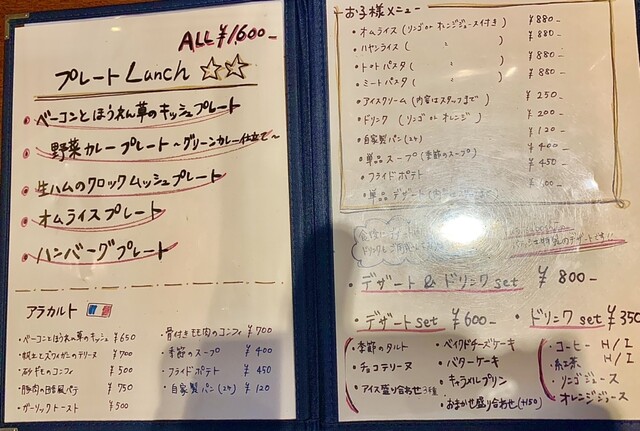 ALL ¥1,600-
プレートLunch ☆☆
・ベーコンとほうれん草のキッシュプレート
・野菜カレープレート～グリーンカレー仕立て～
・生ハムのクロックムッシュプレート
・オムライスプレート
・ハンバーグプレート
アラカルト
・ベーコンとほうれん草のキッシュ ¥650
・帆立とズワイガニのテリーヌ ¥700
・砂ギモのコンフィ ¥500
・豚肉の田舎風パテ ¥750
・ガーリックトースト ¥500
・骨付きモモ肉のコンフィ ¥700
・季節のスープ ¥400
・フライドポテト ¥450
・自家製パン(2ケ) ¥120
お子様メニュー
・オムライス (リンゴ or オレンジジュース付き) ¥880-
・ハヤシライス ( 〃 ) ¥880-
・トマトパスタ ( 〃 ) ¥880-
・ミートパスタ ( 〃 ) ¥880-
・アイスクリーム (内容はスタッフまで) ¥250-
・ドリンク (リンゴ or オレンジ) ¥200-
・自家製パン(2ケ) ¥120-
・単品 スープ (季節のスープ) ¥400-
・フライドポテト ¥450-
・単品 デザート
・デザート & ドリンク set ¥800-
・デザート set ¥600-
・ドリンク set ¥350
・季節のタルト
・チョコテリーヌ
・アイス盛り合わせ3種
・ベイクドチーズケーキ
・バターケーキ
・キャラメルプリン
・おまかせ盛り合わせ(+150)
・コーヒー H/I
・紅茶 H/I
・リンゴジュース
・オレンジジュース